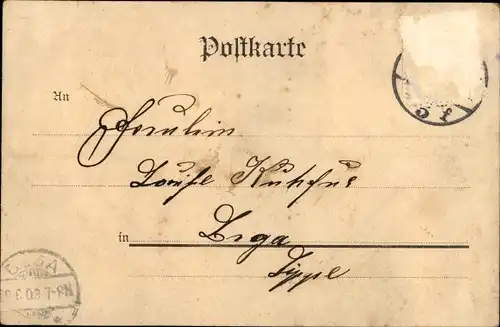 Postkarte
An
Fräulein
Louise Kuhfus
in Lage
Lippe